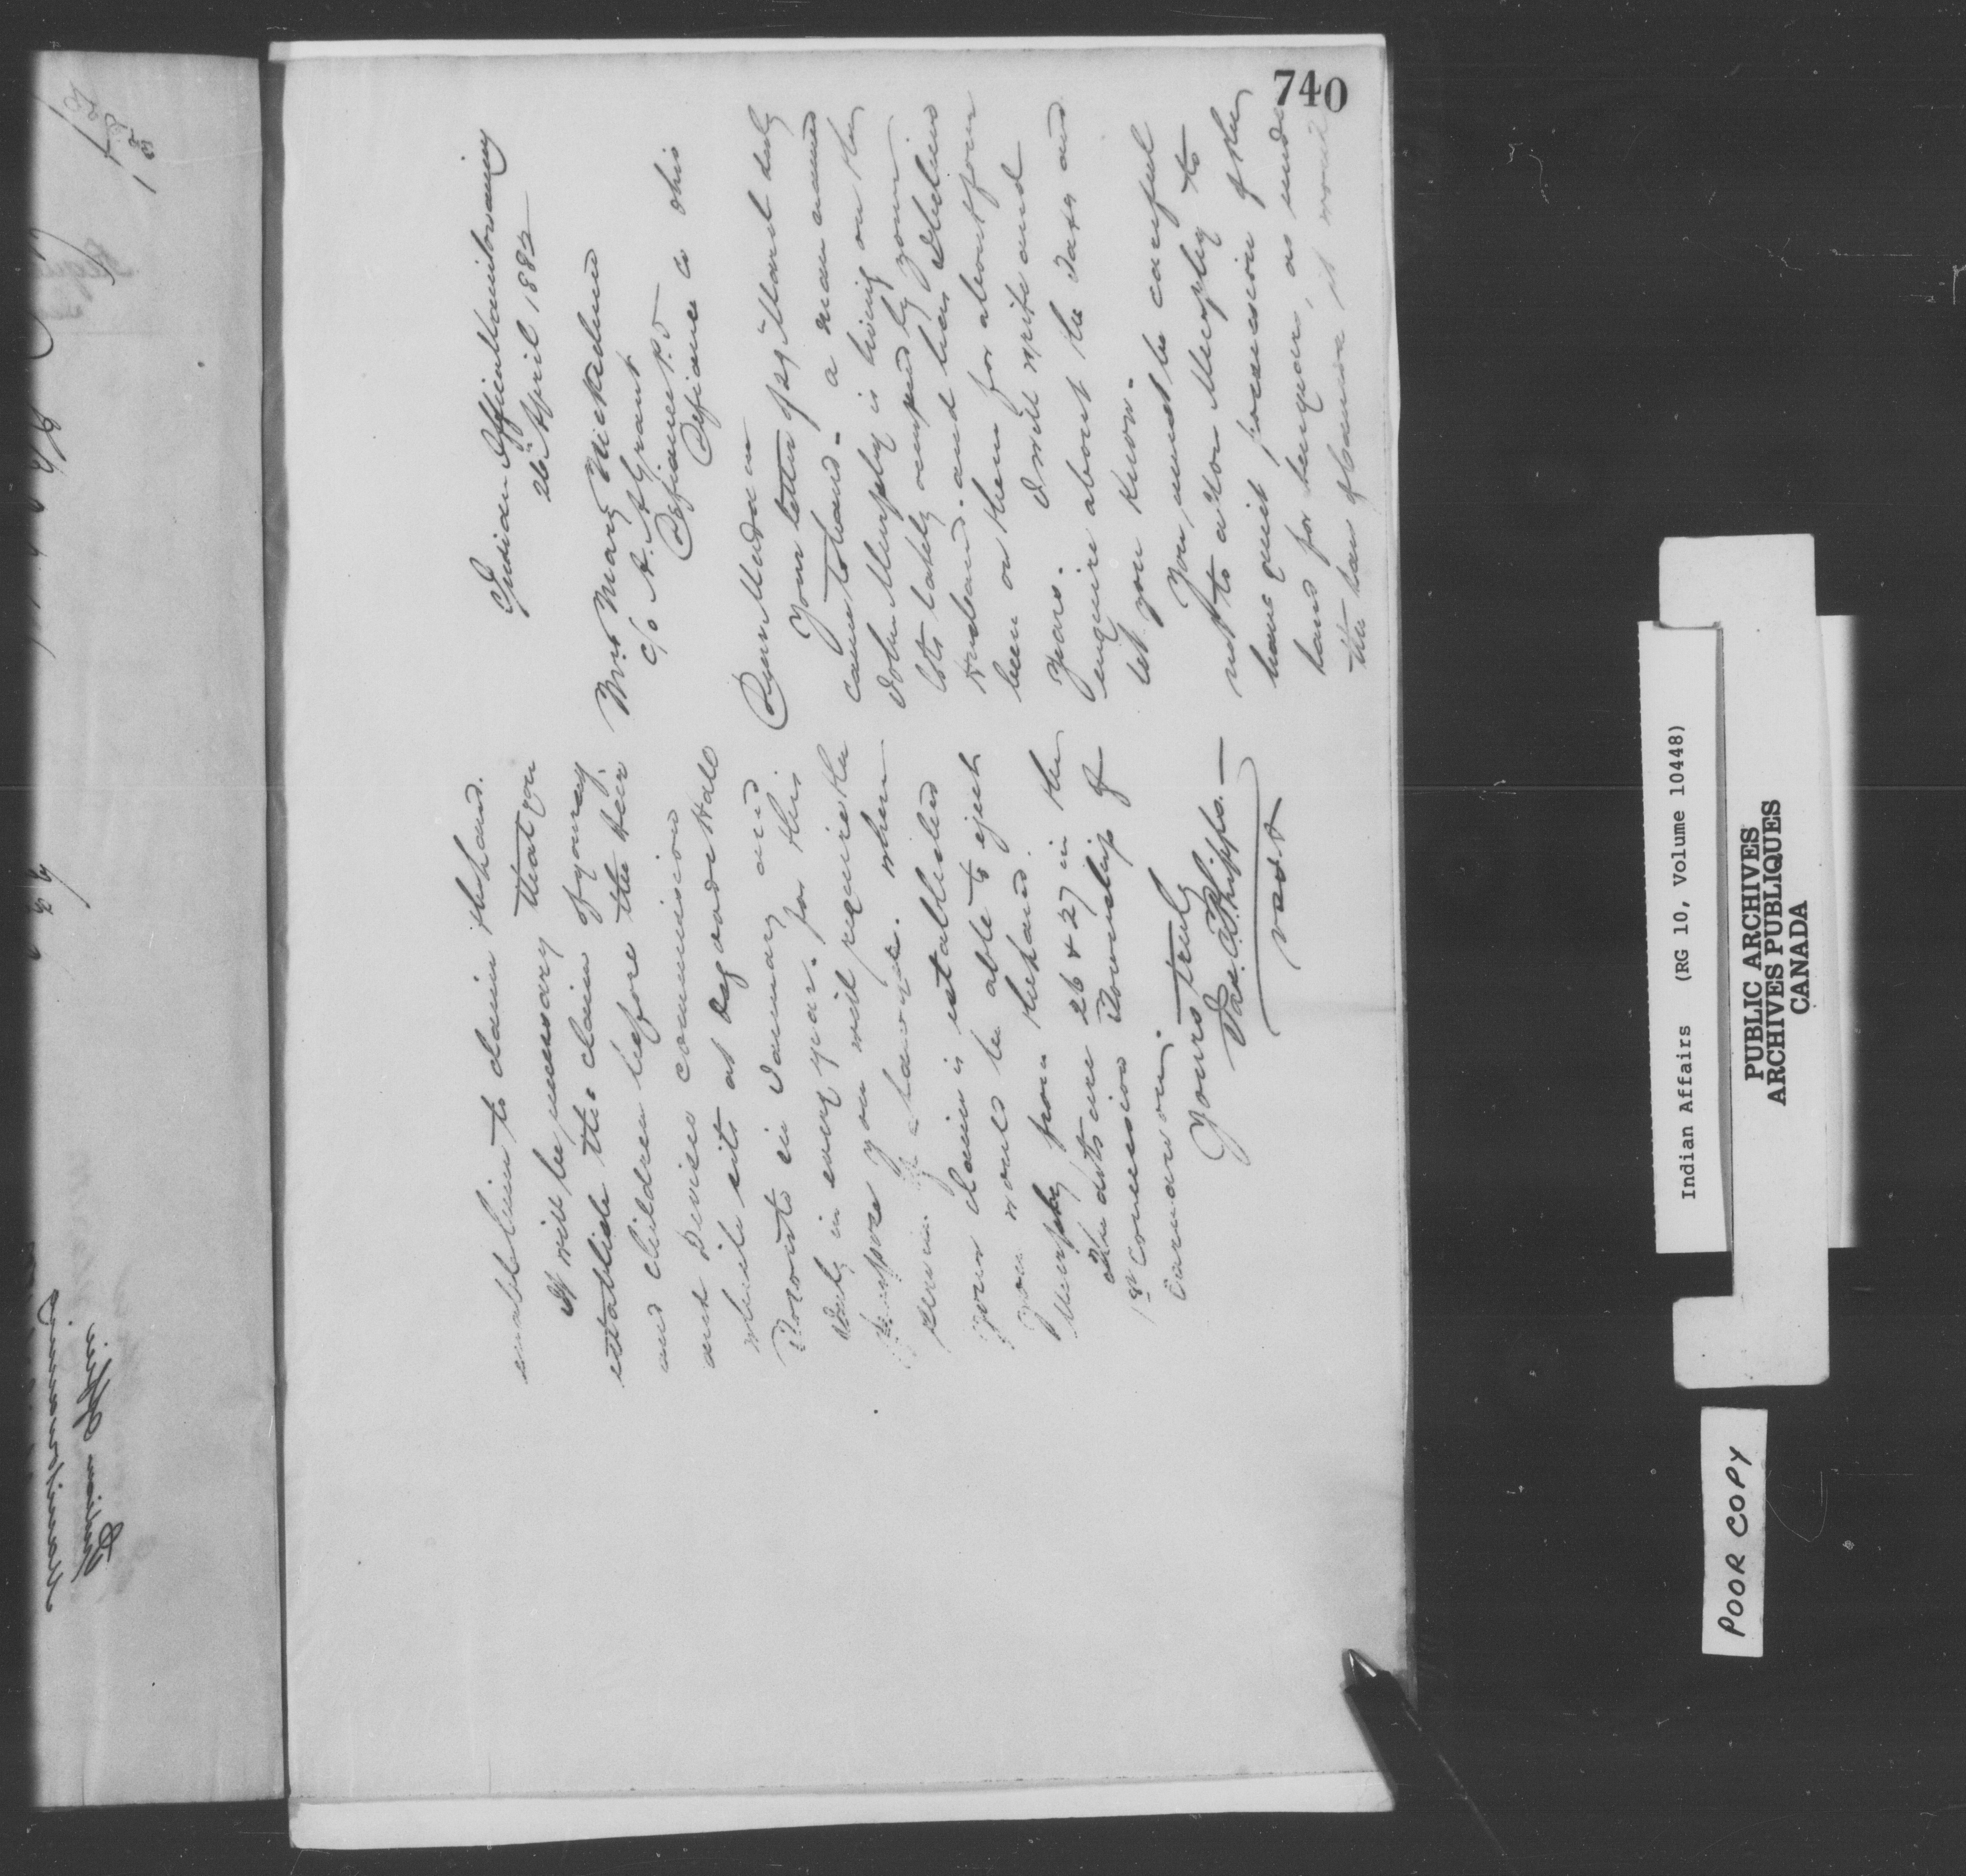 740
Indian Office Manitowaning
26th April 1882
Mrs Mary
c/o A. A. Grant
Defiance P.O
Defiance Co Ohio
Dear Madam
Your letter of 29th March duly
came to hand - a man named
John Murphy is living on the
lots lately occupied by your
Husband. and has been
been on them for about four
years. I will write and
enquire about the Taxes and
let you know -
You must be careful
not to allow Murphy to
have quiet possession of the
land for long years, as under
the law of Canada it would
enable him to claim the land.
It will be necessary that you
establish the claim of yourself
and children before the Heir
and Devisee commission
which sits at Osgoode Hall
Toronto in January and
July in every year. for this
purpose you will require the
services of a lawyer. when
your claim is established
you would be able to eject
Murphy from the land.
The lots are 26 & 27 in the
1st concession Township of
Carnarvon.
Yours truly
Jas. C. Phipps. —
VSST
Manitowaning
Indian Office
Indian Affairs (RG 10, Volume 10448)
PUBLIC ARCHIVES
ARCHIVES PUBLIQUES
CANADA
POOR COPY